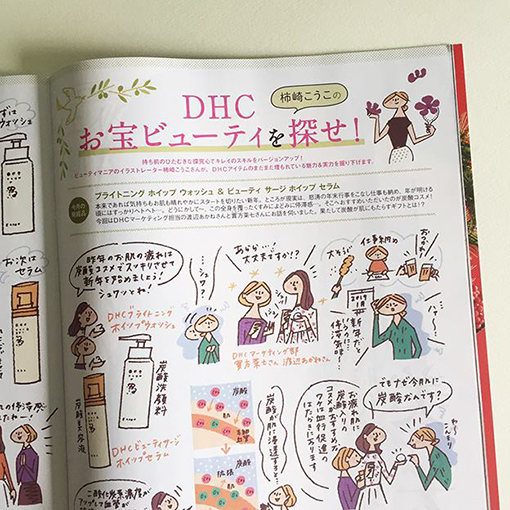 柿崎こうこの
DHC
お宝ビューティを探せ!
持ち前のひたむきな探究心でキレイのスキルをバージョンアップ!
ビューティマニアのイラストレーター柿崎こうこさんが、DHCアイテムのまだまだ埋もれている魅力&実力を掘り下げます。
ブライトニング ホイップ ウォッシュ & ビューティ サージ ホイップ セラム
本来であれば気持ちもお肌も晴れやかにスタートを切りたい新年。ところが現実は、怒涛の年末行事をこなし仕事も納め、年が明ける
頃にはすっかりヘトヘト…。
今回はDHCマーケティング担当の渡辺あかねさんと貫方菜七さんにお話を伺いました。果たして炭酸が肌にもたらすギフトとは!?
ずは
ウォッシュ
お次は
セラム
昨年のお肌の疲れは
炭酸コスメでスッキリさせて
新年を始めましょう!
シュワッとね!
DHCブライトニング
ホイップウォッシュ
炭酸洗顔料
炭酸美容液
DHCビューティサージ
ホイップセラム
あらら…
大丈夫ですか!?
DHCマーケティング部
貫方菜七さん 渡辺あかねさん
大そうじ
仕事納め
2019
1月
新年だと
いうのに
停滞気味…
炭酸
肌
炭酸が肌に浸透すると…
お疲れ肌に
炭酸入りの
コスメがおすすめなワケは
血行促進の
はたらきにあります
でもナゼ今肌に
炭酸なんです?
二酸化炭素濃度が
アップして血管が